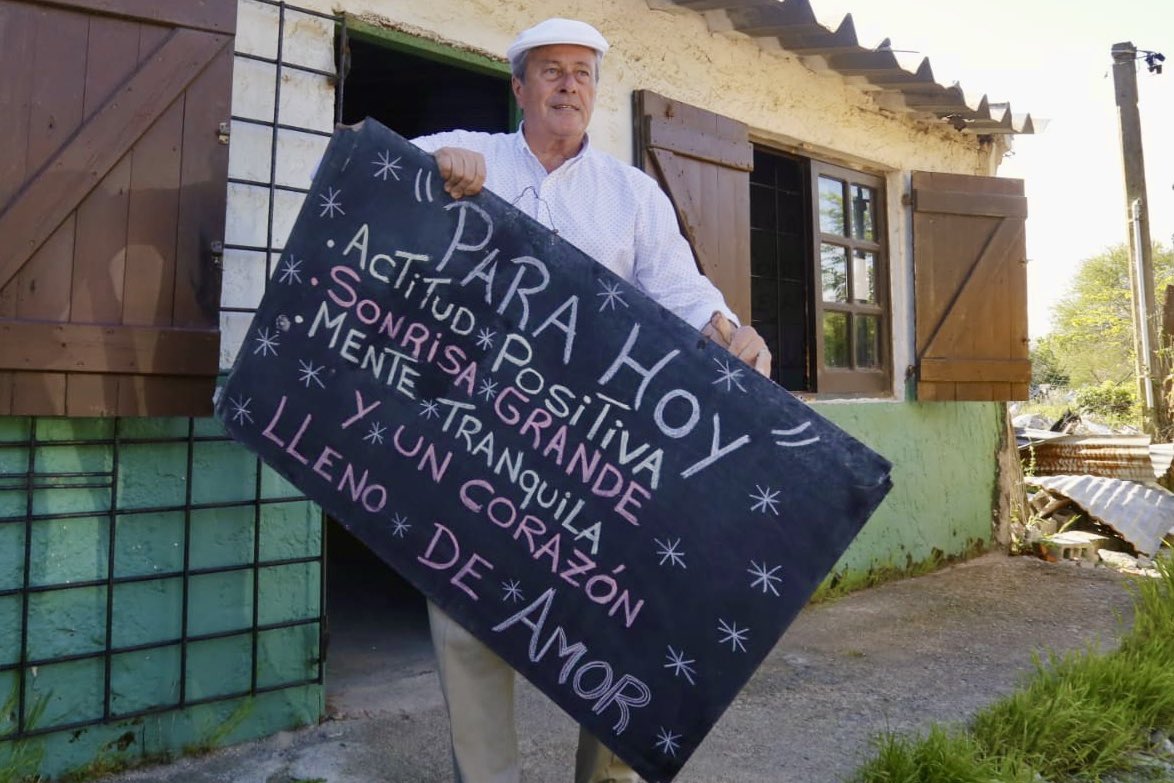 "PARA HOY"
· ACTITUD POSITIVA
· SONRISA GRANDE
· MENTE TRANQUILA
Y UN CORAZÓN
LLENO DE AMOR